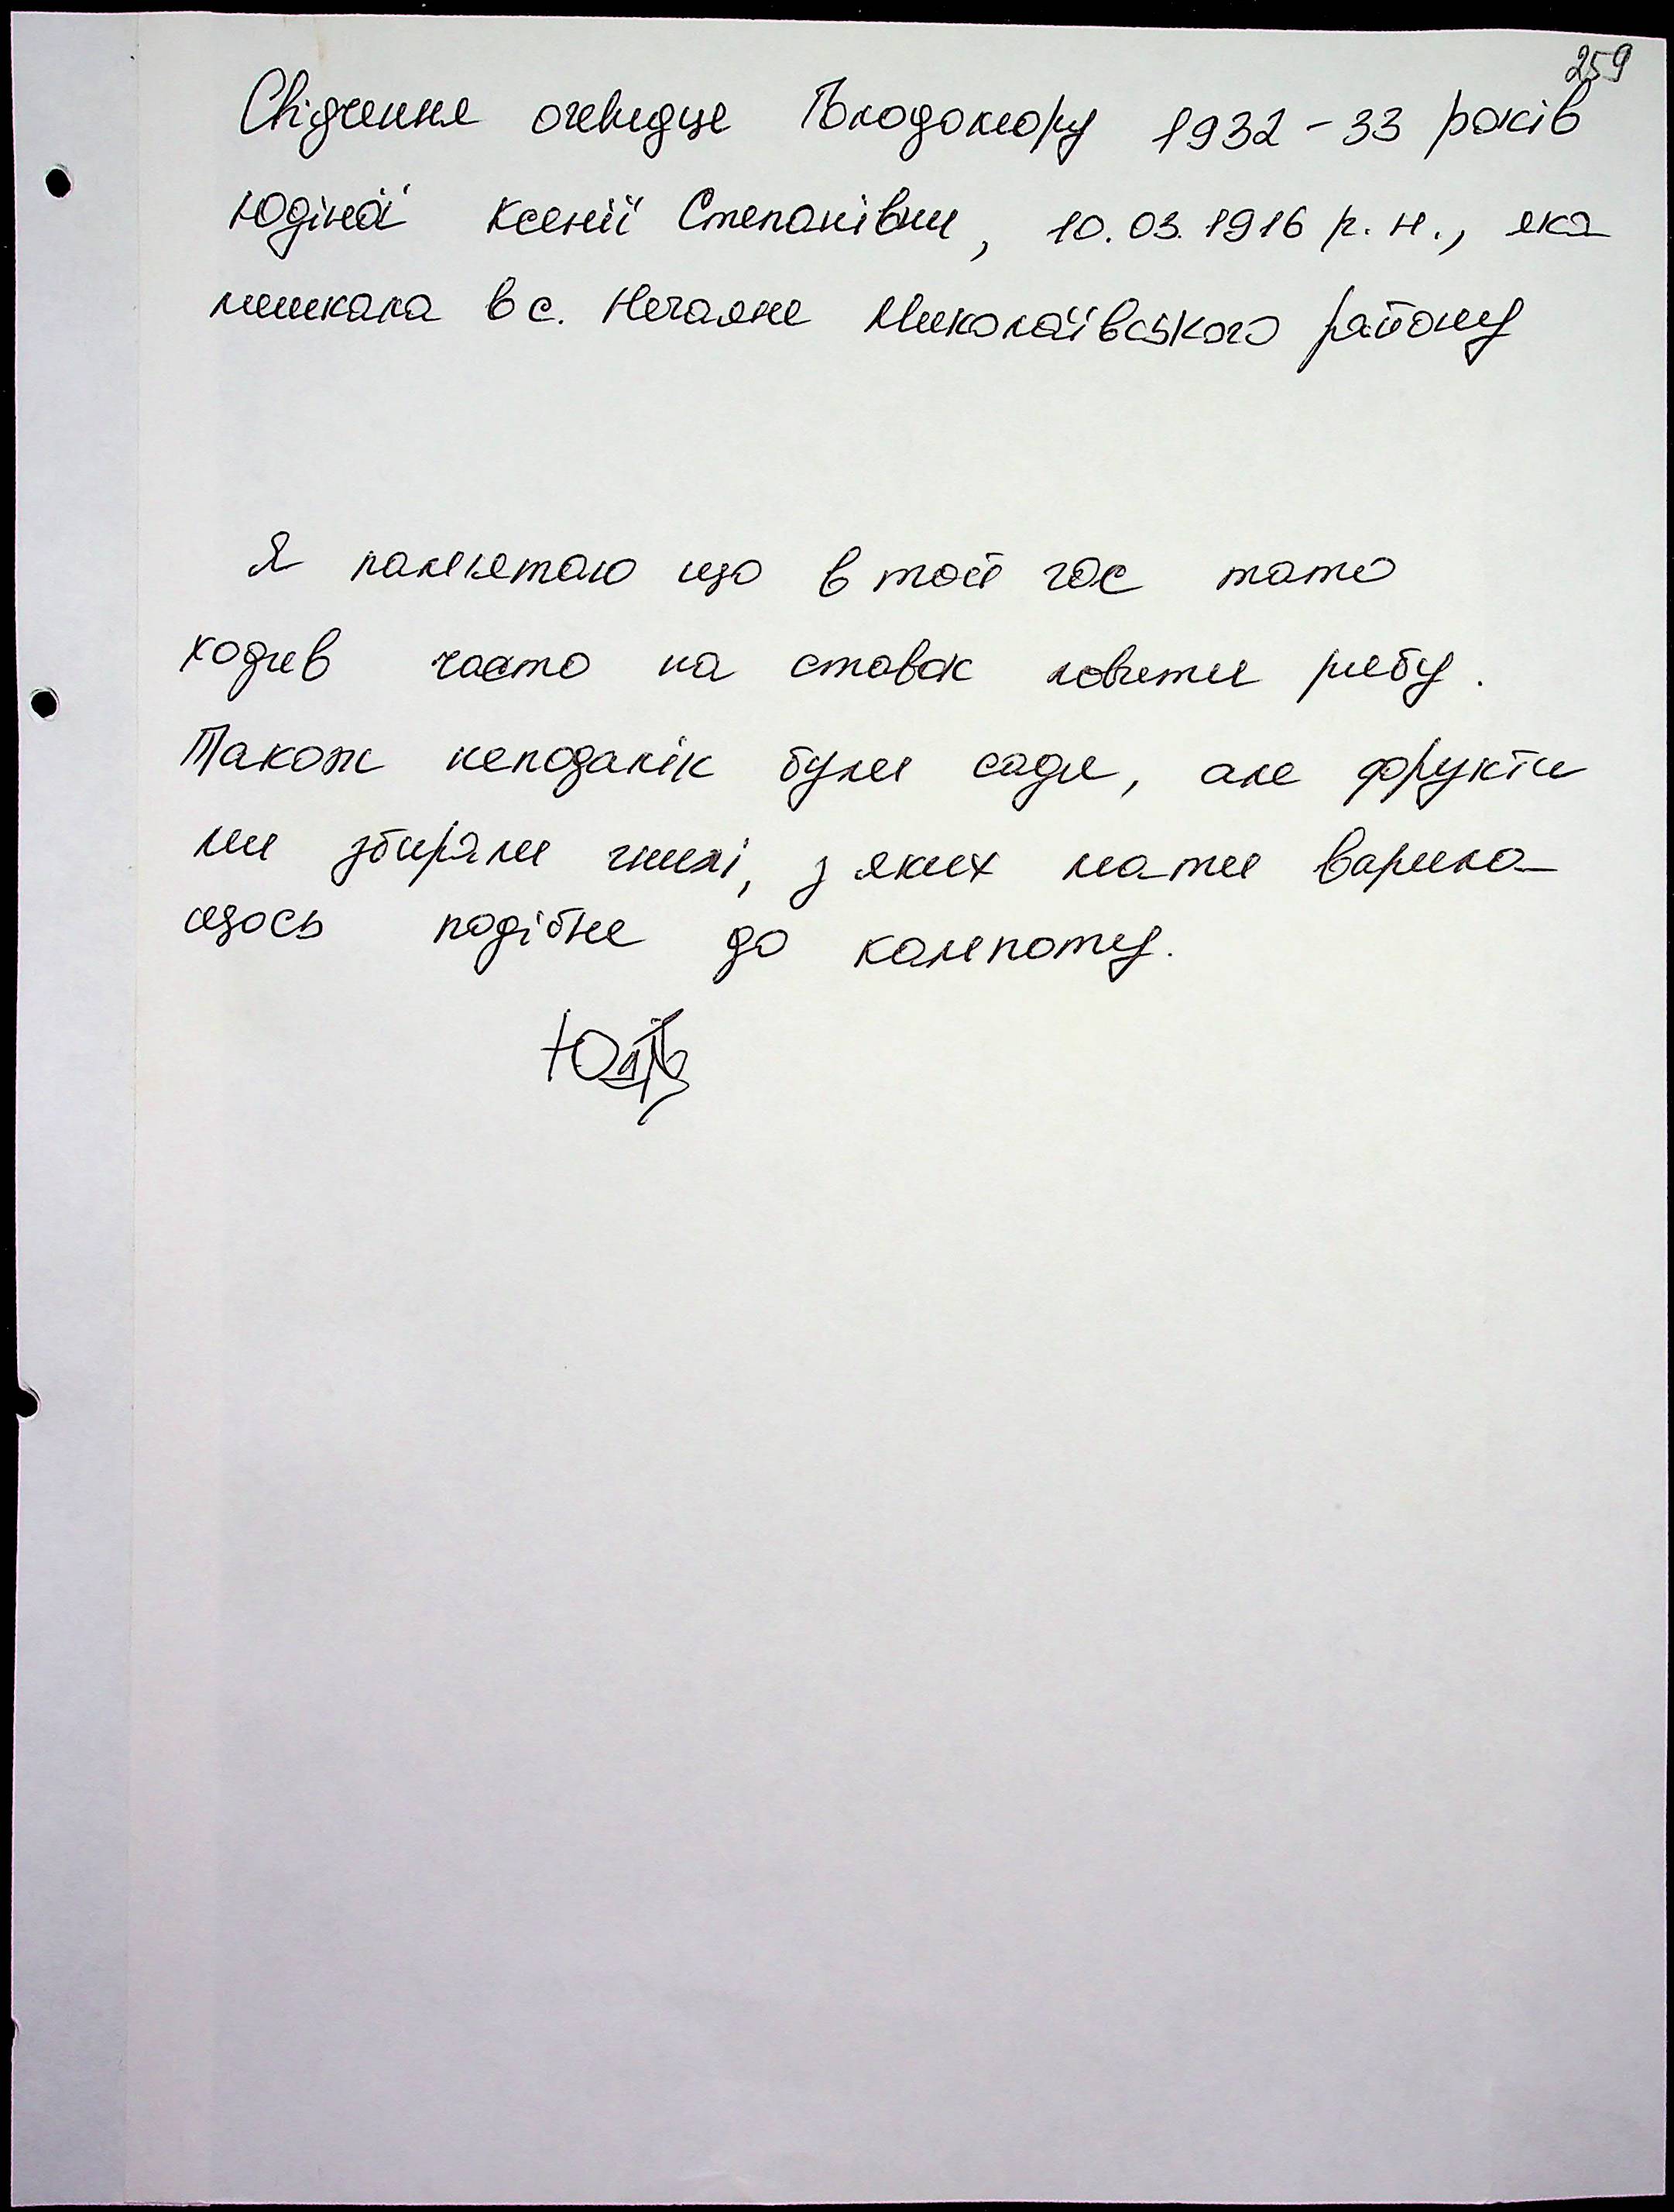 259
Свідчення очевидце Голодомору 1932-33 років
Юдіної Ксенії Степанівни, 10.03.1916 р.н., яка
мешкала в с. Нечаяне Миколаївського району
Я памьятаю що в той час тато
ходив часто на ставок ловити рибу.
Також неподалік були сади, але фрукти
ми збирали гнилі, з яких мати варила
щось подібне до компоту.